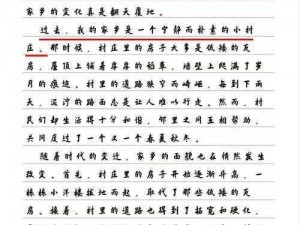 家乡的变化真是翻天覆地。
过去,我的家乡是一个宁静而朴素的小村
庄。那时候,村庄里的房子大多是低矮的瓦
房,屋顶上铺着厚厚的稻草,墙壁上爬满了岁
月的痕迹。村里的道路狭窄而崎岖,每到下雨
天,泥泞的路面总是让人难以行走。然而,村
民们的生活却十分和谐,邻里之间互相帮助,
共同度过了一个又一个春夏秋冬。
随着时代的变迁,家乡的面貌也在悄然发生
改变。首先,村里的房子开始逐渐升高,一
栋栋小洋楼拔地而起,取代了那些低矮的瓦
房。接着,村里的道路也得到了拓宽和硬化,